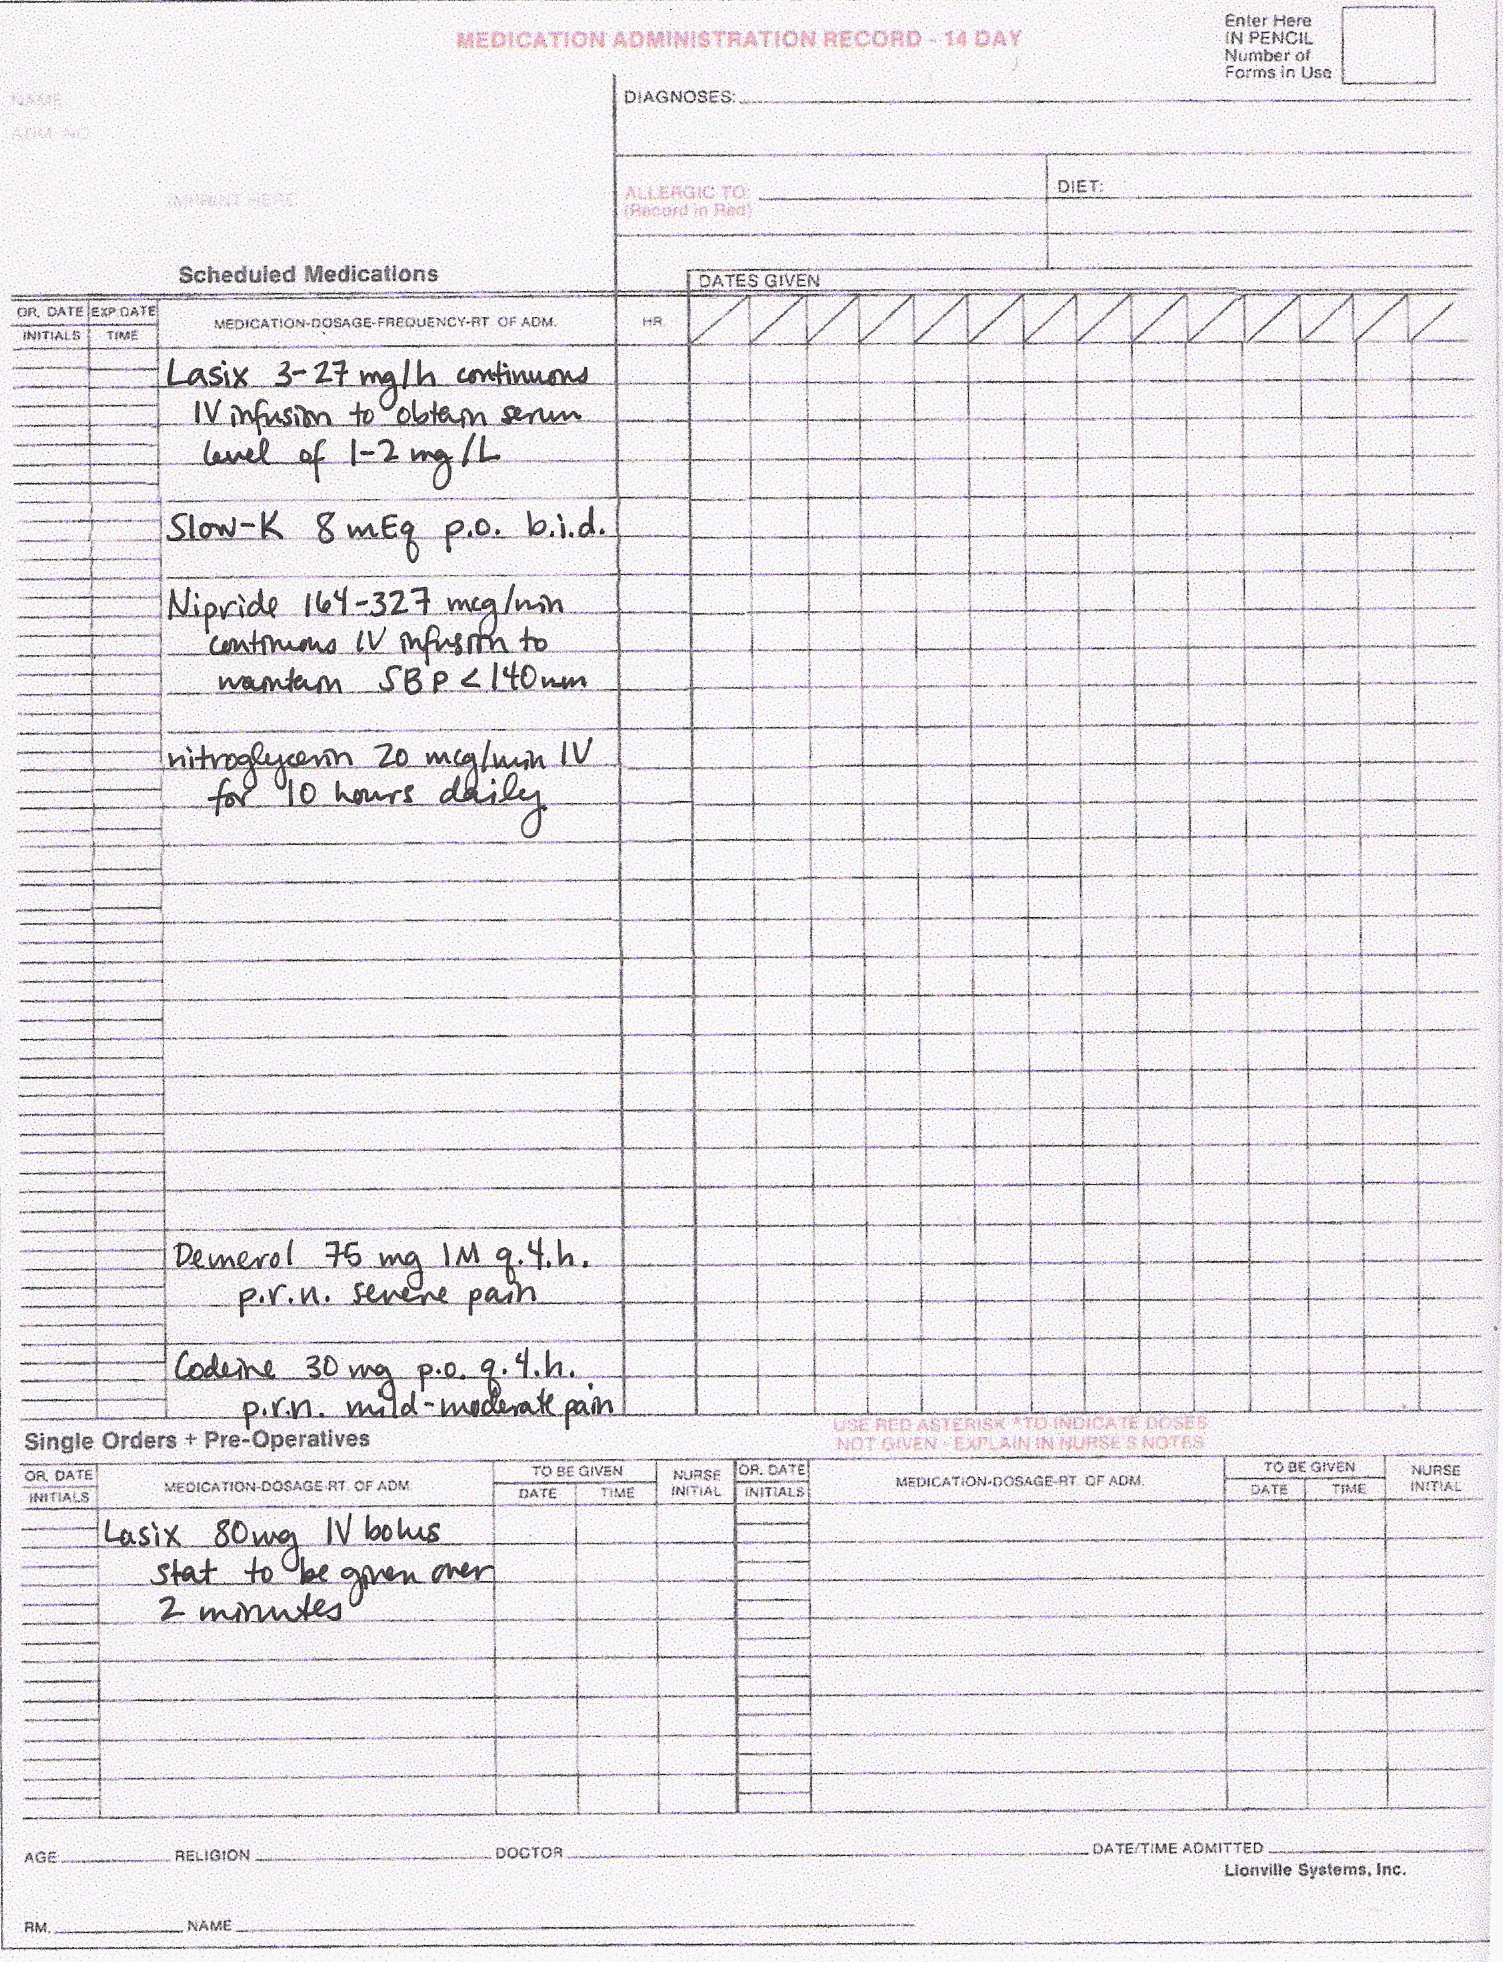 MEDICATION ADMINISTRATION RECORD - 14 DAY
Enter Here
IN PENCIL
Number of
Forms in Use
NAME
ADM. NO.
IMPRINT HERE
DIAGNOSES:
ALLERGIC TO:
(Record in Red)
DIET:
Scheduled Medications
DATES GIVEN
OR. DATE EXP. DATE
INITIALS TIME
MEDICATION-DOSAGE-FREQUENCY-RT. OF ADM.
HR.
Lasix 3-27 mg/h continuous
IV infusion to obtain serum
level of 1-2 mg/L
Slow-K 8 mEq p.o. b.i.d.
Nipride 164-327 mcg/min
continuous IV infusion to
maintain SBP < 140 mm
nitroglycerin 20 mcg/min IV
for 10 hours daily
Demerol 75 mg IM q.4.h.
p.r.n. severe pain
Codeine 30 mg p.o. q.4.h.
p.r.n. mild-moderate pain
USE RED ASTERISK *TO INDICATE DOSES
NOT GIVEN - EXPLAIN IN NURSE'S NOTES
Single Orders + Pre-Operatives
OR. DATE
INITIALS
MEDICATION-DOSAGE-RT. OF ADM.
TO BE GIVEN
DATE TIME
NURSE
INITIAL
OR. DATE
INITIALS
MEDICATION-DOSAGE-RT. OF ADM.
TO BE GIVEN
DATE TIME
NURSE
INITIAL
Lasix 80 mg IV bolus
stat to be given over
2 minutes
AGE RELIGION DOCTOR DATE/TIME ADMITTED
Lionville Systems, Inc.
RM. NAME